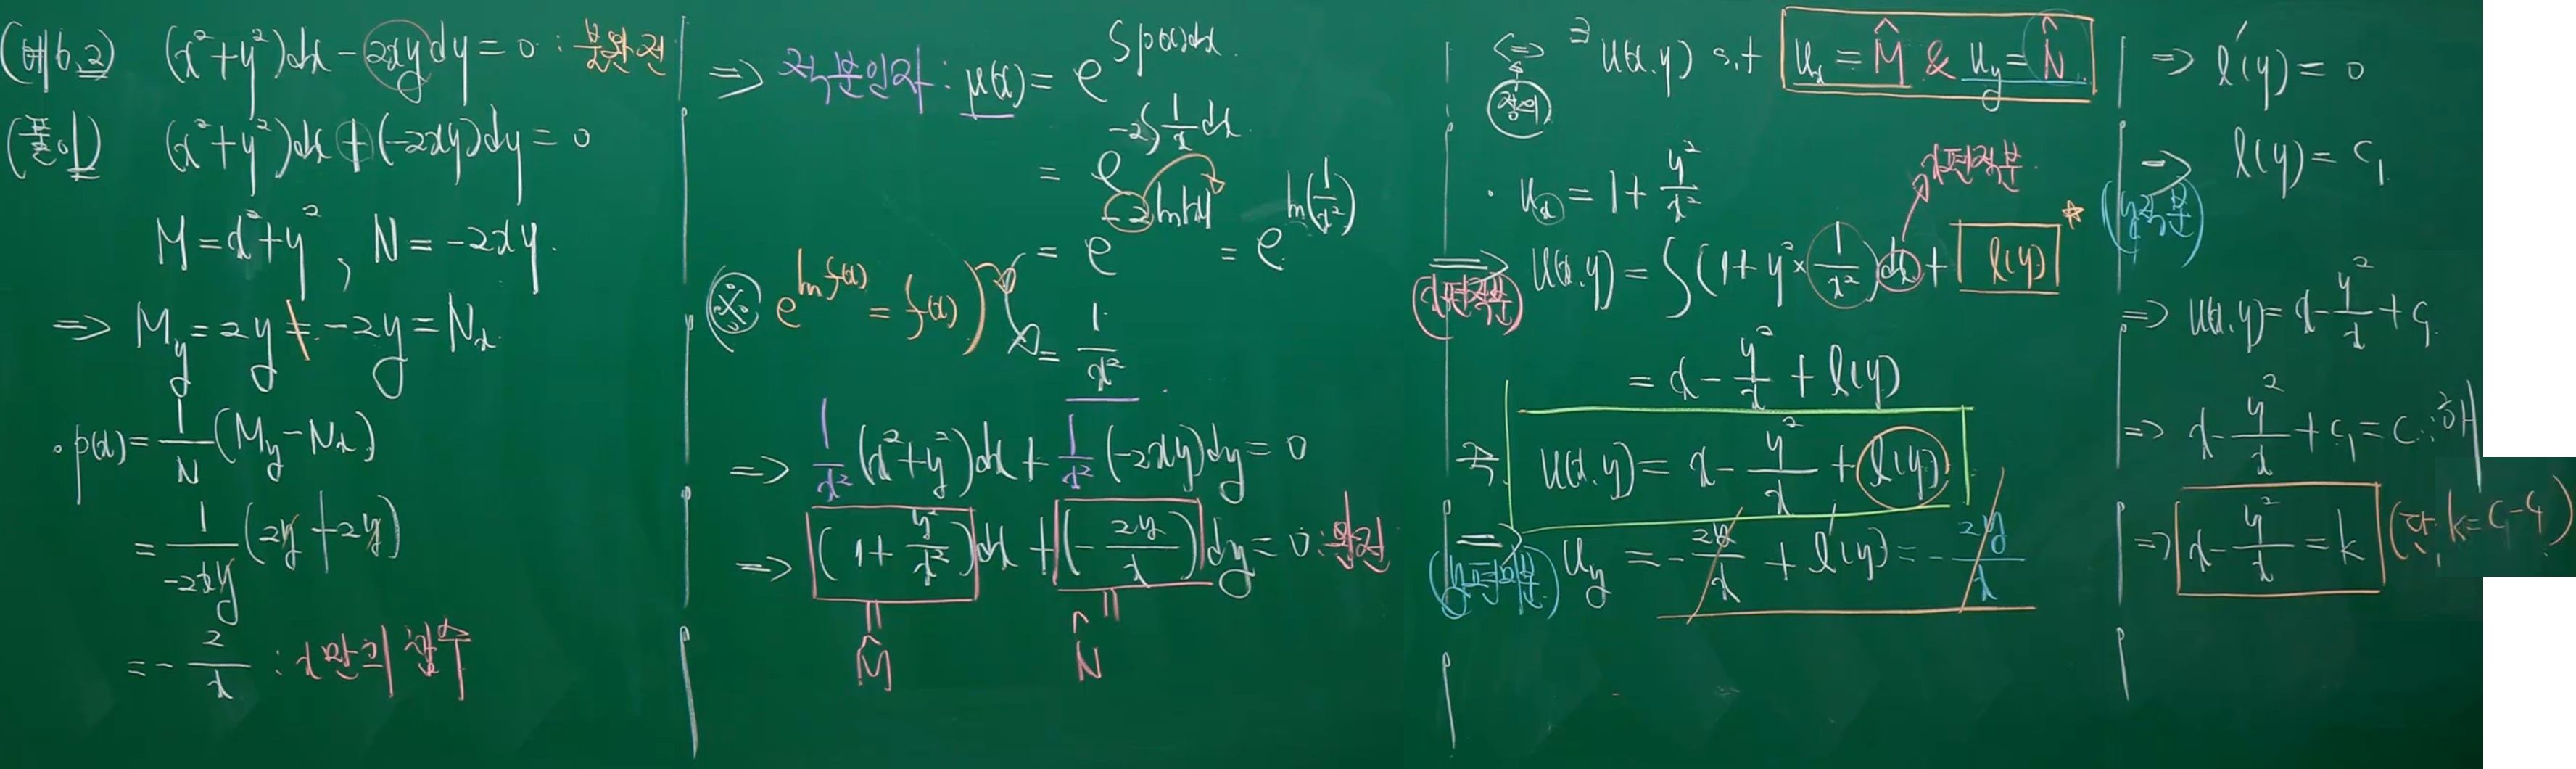 (예6.2) (x²+y²)dx - 2xydy = 0 : 불완전
(풀이) (x²+y²)dx + (-2xy)dy = 0
M = x²+y², N = -2xy.
⇒ M_y = 2y ≠ -2y = N_x
· p(x) = 1/N (M_y - N_x)
= 1/(-2xy) (2y + 2y)
= - 2/x : x만의 함수
⇒ 적분인자 : μ(x) = e^{∫p(x)dx}.
= e^{-2∫(1/x)dx}
= e^{-2ln|x|} = e^{ln(1/x²)}
※ e^{ln f(x)} = f(x)
= 1/x².
⇒ 1/x² (x²+y²)dx + 1/x² (-2xy)dy = 0
⇒ (1 + y²/x²)dx + (- 2y/x)dy = 0 : 완전
M̂ N̂
⇔ ∃ u(x.y) s.t u_x = M̂ & u_y = N̂
정의
· u_x = 1 + y²/x²
x편적분
⇒ u(x.y) = ∫(1 + y² × 1/x²)dx + l(y) *
(x편적분)
= x - y²/x + l(y)
⇒ u(x.y) = x - y²/x + l(y)
⇒ u_y = - 2y/x + l′(y) = - 2y/x
(y편미분)
⇒ l′(y) = 0
⇒ l(y) = c₁
(y적분)
⇒ u(x.y) = x - y²/x + c₁
⇒ x - y²/x + c₁ = c : 해
⇒ x - y²/x = k (단, k = c - c₁)